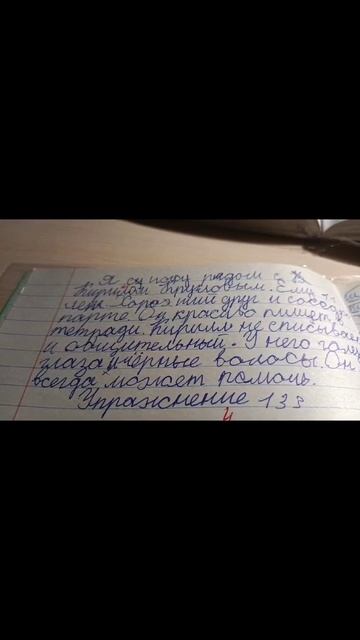 Я сижу рядом с
Кириллом Кругловым. Ему
лет. Хороший друг и сосед
парте. Он красиво пишет в
тетради. Кирилл не списывает
и общительный. У него
глаза и чёрные волосы. Он
всегда может помочь.
Упражнение 133
4